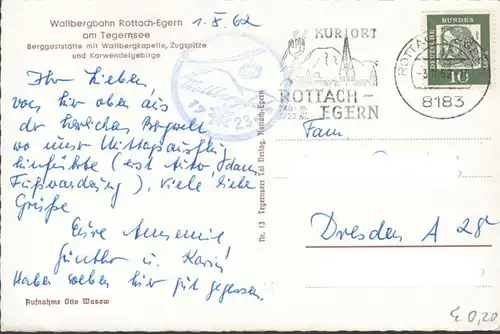 Wallbergbahn Rottach-Egern
am Tegernsee
Berggaststätte mit Wallbergkapelle, Zugspitze
und Karwendelgebirge
1.8.62
Ihr Lieben,
von hier oben aus
der herrlichen Bergwelt,
wo unser Mittagsausflug
hinführte (erst Auto, dann
Fußwanderung), viele liebe
Grüße
Eure Annemie
Günther u. Karin
Haben soeben hier gut gegessen.
Aufnahme Otto Wasow
Nr. 13 Tegernseer Tal Verlag, Rottach-Egern
KURORT
ROTTACH-
EGERN
740-
1722
ROTTACH
8183
DEUTSCHE BUNDESPOST
10
Fam.
Dresden A 28
€ 0,20